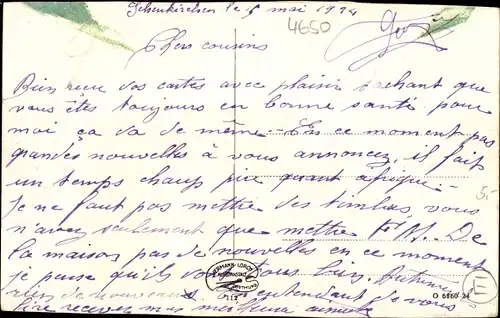 Gelsenkirchen le 15 mai 1924
4650
Chers cousins
Bien reçu vos cartes avec plaisir sachant que
vous êtes toujours en bonne santé pour
moi ça va de même. – En ce moment pas
grandes nouvelles à vous annoncez, il fait
un temps chaup pire quant afrique –
je ne faut pas mettre des timbres, vous
n'avez seulement que mettre F.M. De
la maison pas de nouvelles en ce moment
je pense qu'ils vont tous bien. Autrement
rien de nouveau En attendant de vous
lire recevez mes meilleurs amitiés
HERMANN LORCH
DORTMUND
112
O 6860 24
E